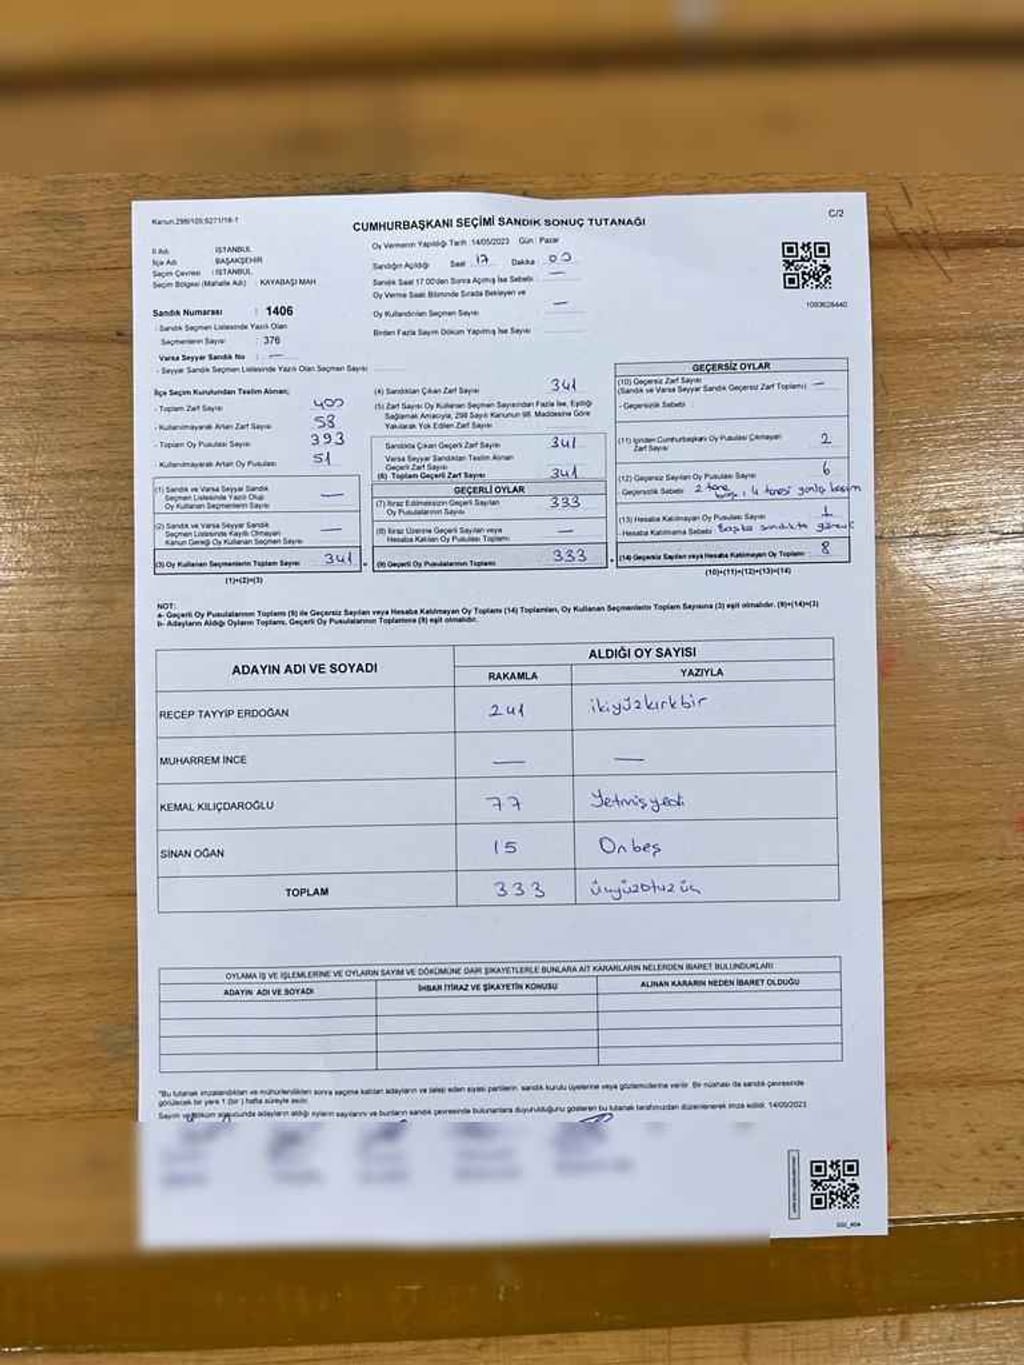 Kanun.298/105;6271/18-1
C/2
CUMHURBAŞKANI SEÇİMİ SANDIK SONUÇ TUTANAĞI
İl Adı : İSTANBUL
İlçe Adı : BAŞAKŞEHİR
Seçim Çevresi : İSTANBUL
Seçim Bölgesi (Mahalle Adı) : KAYABAŞI MAH
Oy Vermenin Yapıldığı Tarih 14/05/2023 Gün : Pazar
Sandığın Açıldığı Saat 17 Dakika 00
Sandık Saat 17:00'den Sonra Açılmış İse Sebebi —
Oy Verme Saati Bitiminde Sırada Bekleyen ve
Oy Kullandırılan Seçmen Sayısı —
Birden Fazla Sayım Döküm Yapılmış İse Sayısı
1093628440
Sandık Numarası : 1406
- Sandık Seçmen Listesinde Yazılı Olan
Seçmenlerin Sayısı : 376
Varsa Seyyar Sandık No : —
- Seyyar Sandık Seçmen Listesinde Yazılı Olan Seçmen Sayısı
İlçe Seçim Kurulundan Teslim Alınan;
- Toplam Zarf Sayısı 400
- Kullanılmayarak Artan Zarf Sayısı 58
- Toplam Oy Pusulası Sayısı 393
- Kullanılmayarak Artan Oy Pusulası 51
(1) Sandık ve Varsa Seyyar Sandık
Seçmen Listesinde Yazılı Olup
Oy Kullanan Seçmenlerin Sayısı —
(2) Sandık ve Varsa Seyyar Sandık
Seçmen Listesinde Kayıtlı Olmayan
Kanun Gereği Oy Kullanan Seçmen Sayısı —
(3) Oy Kullanan Seçmenlerin Toplam Sayısı 341
(1)+(2)=(3)
(4) Sandıktan Çıkan Zarf Sayısı 341
(5) Zarf Sayısı Oy Kullanan Seçmen Sayısından Fazla İse, Eşitliği
Sağlamak Amacıyla, 298 Sayılı Kanunun 98. Maddesine Göre
Yakılarak Yok Edilen Zarf Sayısı
Sandıkta Çıkan Geçerli Zarf Sayısı 341
Varsa Seyyar Sandıktan Teslim Alınan
Geçerli Zarf Sayısı
(6) Toplam Geçerli Zarf Sayısı 341
GEÇERLİ OYLAR
(7) İtiraz Edilmeksizin Geçerli Sayılan
Oy Pusulalarının Sayısı 333
(8) İtiraz Üzerine Geçerli Sayılan veya
Hesaba Katılan Oy Pusulası Toplamı —
(9) Geçerli Oy Pusulalarının Toplamı 333
GEÇERSİZ OYLAR
(10) Geçersiz Zarf Sayısı
(Sandık ve Varsa Seyyar Sandık Geçersiz Zarf Toplamı) —
- Geçersizlik Sebebi :
(11) İçinden Cumhurbaşkanı Oy Pusulası Çıkmayan
Zarf Sayısı 2
(12) Geçersiz Sayılan Oy Pusulası Sayısı 6
Geçersizlik Sebebi : 2 tane boş, 4 tanesi yanlış basım
(13) Hesaba Katılmayan Oy Pusulası Sayısı
- Hesaba Katılmama Sebebi : Başka sandıkta
(14) Geçersiz Sayılan veya Hesaba Katılmayan Oy Toplamı 8
(10)+(11)+(12)+(13)=(14)
NOT:
a- Geçerli Oy Pusulalarının Toplamı (9) ile Geçersiz Sayılan veya Hesaba Katılmayan Oy Toplamı (14) Toplamları, Oy Kullanan Seçmenlerin Toplam Sayısına (3) eşit olmalıdır. (9)+(14)=(3)
b- Adayların Aldığı Oyların Toplamı, Geçerli Oy Pusulalarının Toplamına (9) eşit olmalıdır.
ADAYIN ADI VE SOYADI
ALDIĞI OY SAYISI
RAKAMLA YAZIYLA
RECEP TAYYİP ERDOĞAN 241 ikiyüzkırkbir
MUHARREM İNCE — —
KEMAL KILIÇDAROĞLU 77 Yetmişyedi
SİNAN OĞAN 15 Onbeş
TOPLAM 333 üçyüzotuzüç
OYLAMA İŞ VE İŞLEMLERİNE VE OYLARIN SAYIM VE DÖKÜMÜNE DAİR ŞİKAYETLERLE BUNLARA AİT KARARLARIN NELERDEN İBARET BULUNDUKLARI
ADAYIN ADI VE SOYADI
İHBAR İTİRAZ VE ŞİKAYETİN KONUSU
ALINAN KARARIN NEDEN İBARET OLDUĞU
"Bu tutanak imzalandıktan ve mühürlendikten sonra seçime katılan adayların ve talep eden siyasi partilerin, sandık kurulu üyelerine veya gözlemcilerine verilir. Bir nüshası da sandık çevresinde
görülecek bir yere 1 (bir) hafta süreyle asılır.
Sayım ve döküm sonucunda adayların aldığı oyların sayılarını ve bunların sandık çevresinde bulunanlara duyurulduğunu gösteren bu tutanak tarafımızdan düzenlenerek imza edildi. 14/05/2023